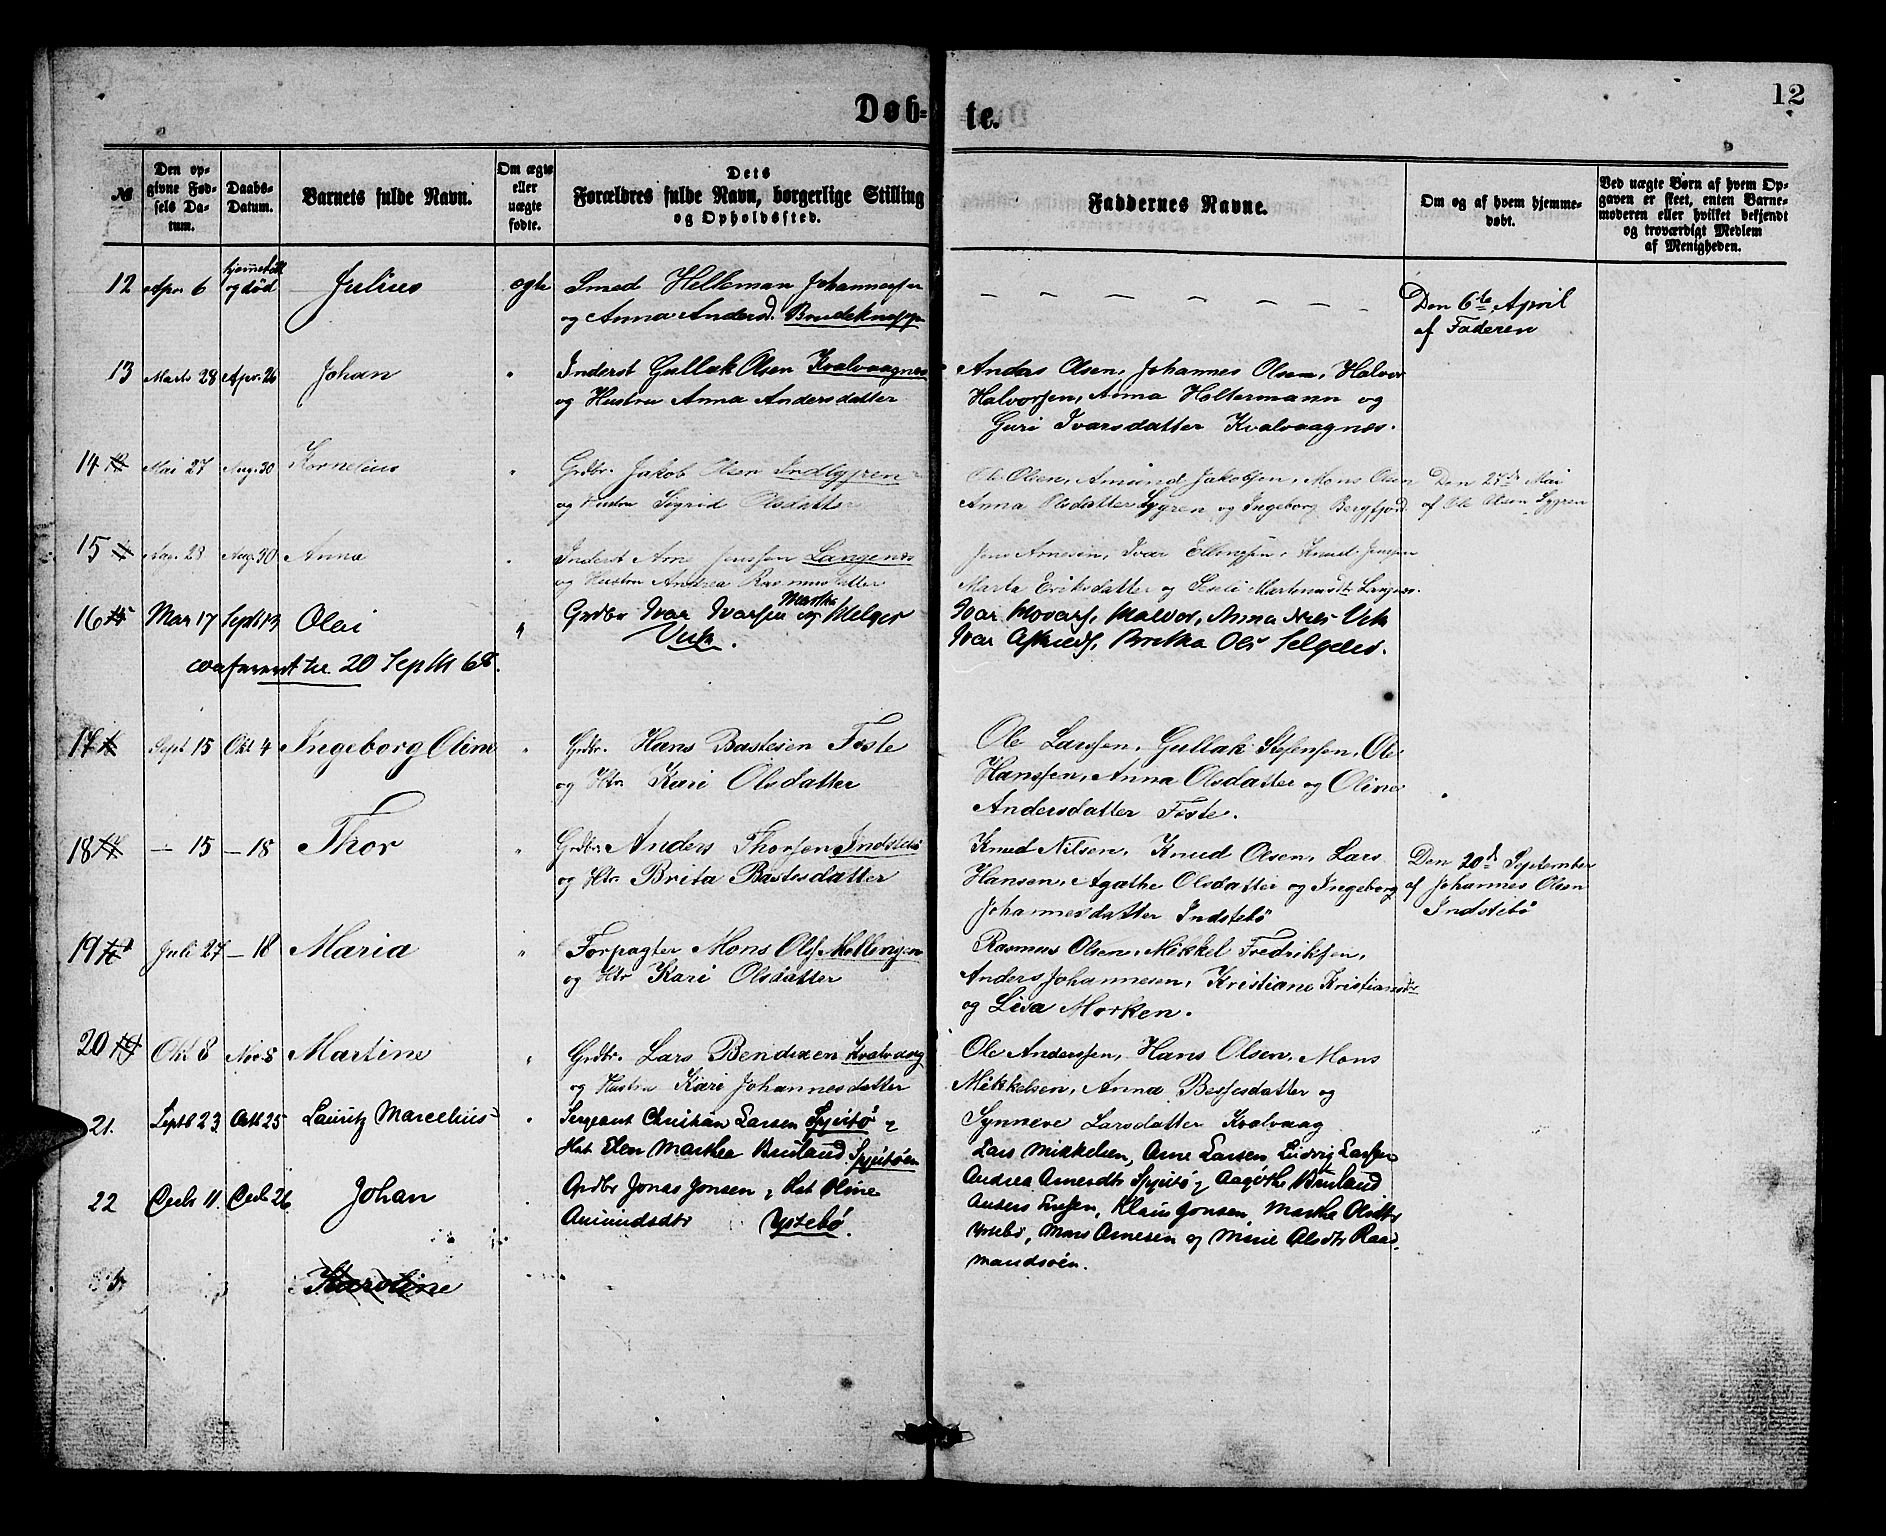 12
Døb-te.
№
Den op-
givne Fød-
sels Da-
tum.
Daabs-
Datum.
Barnets fulde Navn.
Om ægte
eller
uægte
fødte.
Dets
Forældres fulde Navn, borgerlige Stilling
og Opholdssted.
Faddernes Navne.
Om og af hvem hjemme-
døbt.
Ved uægte Børn af hvem Op-
gaven er skeet, enten Barne-
moderen eller hvilket bekjendt
og troværdigt Medlem
af Menigheden.
12 Apr 6 hjemmedøbt og død Julius ægte Smed Helleman Johannessen
og Anna Andersd. Brudeknapp
Den 6te April
af Faderen
13 Marts 28 Apr. 26 Johan " Inderst Gullak Olsen Kvalvaagnes
og Hustru Anna Andersdatter
Anders Olsen, Johannes Olsen, Halvor
Halvorsen, Anna Holtermann og
Guri Ivarsdatter Kvalvaagnes.
14 Mai 27 Aug. 30 Kornelius " Grdbr. Jakob Olsen Indlygren
og Hustru Sigrid Olsdatter
Ole Olsen, Amund Jakobsen, Mons Olsen
Anna Olsdatter Lygren og Ingeborg Bergfjord
Den 27de Mai
af Ole Olsen Lygren
15 28 Aug. 30 Anna " Inderst Arne Jenssen Langenes
og Hustru Andrea Rasmusdatter
Jens Arnesen, Ivar Ellingsen, Knud Jenssen
Marta Eriksdatter og Martensdtr
16 Mar 17 Septb 13 Olai " Grdbr Ivar Ivarsen og Martha Helger
Ivar Halvor, Anna Niels
Ivar Ols
20 Septbr 68.
17 Sept 15 Okt 4 Ingeborg Oline " Grdbr. Hans Bastesen Foste
og Htr Kari Olsdatter
Ole Larssen, Gullak Ole
Hanssen, Anna Olsdatter og Oline
Andersdatter Foste.
18 — 15 — 18 Thor " Grdbr. Anders Thorsen Indstebø
og Htr Brita Bastesdatter
Knud Nilsen, Knud Olsen, Lars
Hansen, Agathe Olsdatter og Ingeborg
Johannesdatter Indstebø
Den 20de September
af Johannes Olsen
Indstebø
19 Juli 27 — 18 Maria " Forpagter Mons Ols Mollingen
og Htr Kari Olsdatter
Rasmus Olsen, Mikkel Fredriksen,
Anders Johannesen, Kristiane Kristiansdtr
og Lisa Morken.
20 Okt 8 Nov 8 Martine " Grdbr. Lars Bendixen Kvalvaag
og Hustru Kari Johannesdatter
Ole Anderssen, Hans Olsen, Mons
Mikkelsen, Anna Bessesdatter og
Synneve Larsdatter Kvalvaag
21. Septb 23 Octb 25 Lauritz Marcelius " Sergeant Christian Larsen Spjutø
Hst Elen Marthea Bruland Spjutøen
Lars Mikkelsen, Arne Larsen, Ludvig Larsen
Andrea Arnesdtr Spjutø Bruland
22 Octb 11. Octb 26 Johan Grdbr Jonas Jonsen Hst Oline
Amundsdtr Ystebø.
Anders Klaus Jonsen, Martha
Ystebø, Mons Arnesen og Marie Olsdtr Raad-
mandsøen.
Karoline